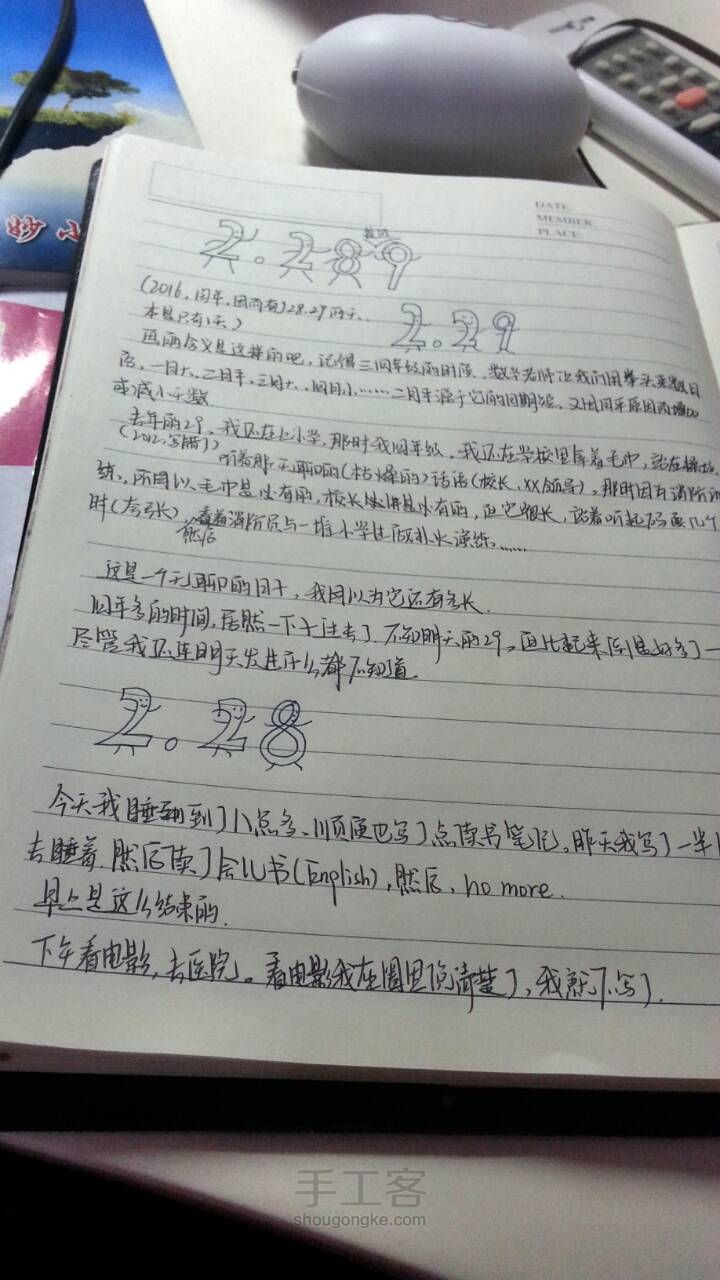 妙小
DATE
MEMBER
PLACE
2.289
(2016,闰年,因而有)28.29两天..
本是只有1天)
2.29
四两含义是这样的吧,记得三四年级的时候,数学老师让我们用拳头来数日
历,一月大,二月平,三月大,四月小……二月平源于它的周期短,又因闰年原因而增加
或减小天数
去年的29,我还在上小学,那时我四年级,我还在学校里拿着毛巾,站在操场
(2012,写错了)
听着那无聊的(枯燥的)话语(校长,XX领导),那时因有消防演
练,所以毛巾是必有的,校长讲是必有的,但它很长,站着听起码要几个
时(夸张),看着消防员与一堆小学生做扑火演练……
然后
这是一个无聊的日子,我因以为它还有多长.
四年多的时间,居然一下子过去了.不知明天的29,但比起来倒是好多了一
尽管我还连明天发生什么都不知道.
2.28
今天我睡到了八点多、顺便也写了点读书笔记,昨天我写了一半
去睡着.然后读了会儿书(English),然后,no more.
早上是这么结束的.
下午看电影,去医院。看电影我在圈里说清楚了,我就不写了.
手工客
shougongke.com